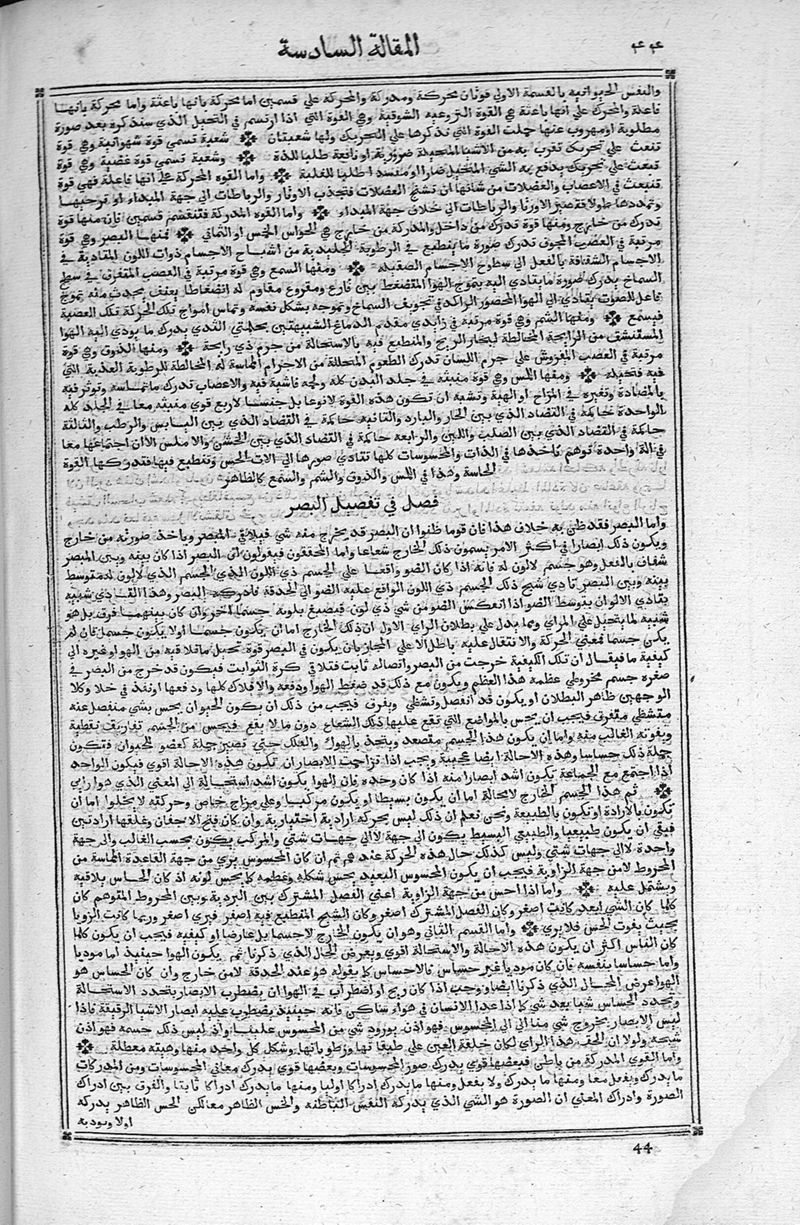 ٤٤
المقالة السادسة
والنفس الحيوانيه بالقسمة الاولي قوتان محركة ومدركة والمحركة علي قسمين اما محركة بانها باعثة واما محركة بانها
فاعلة والمحرك علي انها باعثة هي القوة النزوعيه الشوقية وهي القوة التي اذا ارتسم في التخيل الذي سنذكره بعد صورة
مطلوبة او مهروب عنها حملت القوة التي نذكرها علي التحريك ولها شعبتان شعبة تسمي قوة شهوانية وهي قوة
تنبعث علي تحريك تقرب به من الاشيا المتخيلة ضرورية او نافعة طلبا للذة وشعبة تسمي قوة غضبية وهي قوة
تنبعث علي تحريك يدفع به الشي المتخيل ضارا او مفسدا طلبا للغلبة واما القوه المحركة علي انها فاعلة فهي قوة
تنبعث في الاعصاب والعضلات من شانها ان تشنج العضلات فتجذب الاوتار والرباطات الي جهة المبداء او ترخيها
وتمددها طولا فتصير الاوتار والرباطات الي خلاف جهة المبداو واما القوه المدركة فتنقسم قسمين فان منها قوة
تدرك من خارج ومنها قوة تدرك من داخل والمدركة من خارج هي الحواس الخمس او الثماني فمنها البصر وهي قوة
مرتبة في العصب المجوف تدرك صورة ما ينطبع في الرطوبة الجليدية من اشباح الاجسام ذوات اللون المتادية في
الاجسام الشفافة بالفعل الي سطوح الاجسام الصقيلة ومنها السمع وهي قوة مرتبة في العصب المتفرق في سطح
السماخ يدرك صورة ما يتادي اليه بتموج الهوا المنضغط بين قارع ومقروع مقاوم له انضغاطا بعنف يحدث منه تموج
فاعل للصوت يتادي الي الهوا المحصور الراكد في تجويف السماخ وتموجه بشكل نفسه وتماس امواج تلك الحركة تلك العصبة
فيسمع ومنها الشم وهي قوة مرتبة في زايدي مقدم الدماغ الشبيهتين بحلمتي الثدي يدرك ما يودي اليه الهوا
المستنشق من الرايحة المخالطة لبخار الريح والمنطبع فيه بالاستحالة من جرم ذي رايحة ومنها الذوق وهي قوة
مرتبة في العصب المفروش علي جرم اللسان تدرك الطعوم المتحللة من الاجرام المماسة له المخالطة للرطوبة العذبة التي
فيه فتحيله ومنها اللمس وهي قوة منبثه في جلد البدن كله ولحمه فاشية فيه والاعصاب تدرك ما تماسه وتوثر فيه
بالمضادة وتغيره في المزاج او الهية وتشبه ان تكون هذه القوة لا نوعا بل جنسا لاربع قوي منبثه معا في الجلد كله
الواحدة حاكمة في التضاد الذي بين الحار والبارد والثانيه حاكمة في التضاد الذي بين اليابس والرطب والثالثة
حاكمة في التضاد الذي بين الصلب واللين والرابعه حاكمة في التضاد الذي بين الخشن والاملس الا ان اجتماعها معا
في الة واحدة توهم تاحدها في الذات والمحسوسات كلها تتادي صورها الي الات الحس وتنطبع فيها فتدركها القوة
الحاسة وهذا في اللمس والذوق والشم والسمع كالظاهر
فصل في تفصيل البصر
واما البصر فقد ظن به خلاف هذا فان قوما ظنوا ان البصر قد يخرج منه شي فيلاقي المبصر وياخذ صورته من خارج
ويكون ذلك ابصارا في اكثر الامر يسمون ذلك الخارج شعاعا واما المحققون فيقولون ان البصر اذا كان بينه وبين المبصر
شفاف بالفعل وهو جسم لا لون له فانه اذا كان الضو واقعا علي الجسم ذي اللون الذي الجسم الذي لا لون له متوسط
بينه وبين البصر تادي شبح ذلك الجسم ذي اللون الواقع عليه الضو الي الحدقة فادركه البصر وهذا التادي شبيه
بتادي الالوان بتوسط الضو اذا انعكس الضو من شي ذي لون فيصبغ بلونه جسما اخر وان كان بينهما فرق بل هو
شبيه لما يتخيل علي المراي ومما يدل علي بطلان الراي الاول ان ذلك الخارج اما ان يكون جسما او لا يكون جسما فان لم
يكن جسما فمعني الحركة والانتقال عليه باطل الا علي المجاز بان يكون في البصر قوة تحيل ما تلاقيه من الهوا وغيره الي
كيفية ما فيقال ان تلك الكيفية خرجت من البصر واتصاله ثابت فتلاقي كرة الثوابت فيكون قد خرج من البصر في
صغره جسم مخروطي عظمه هذا العظم ويكون مع ذلك قد ضغط الهوا ودفعه والافلاك كلها ودفعها او نفذ في خلا وكلا
الوجهين ظاهر البطلان او يكون قد انفصل وتشظي وتفرق فيجب من ذلك ان يكون الحيوان يحس بشي منفصل عنه
متشظي متفرق فيجب ان يحس بالمواضع التي تقع عليها ذلك الشعاع دون ما لا يقع فيحس من الجسم تفاريق نقطية
ويفوته الغالب منه واما ان يكون هذا الجسم متصعد ويتحد بالهواء والفلك حتي تصير جملة كعضو للحيوان فتكون
جملة ذلك حساسا وهذه الاحالة ايضا عجيبة ويجب اذا تزاحمت الابصار ان تكون هذه الاحالة اقوي فيكون الواحد
اذا اجتمع مع الجماعة يكون اشد ابصارا منه اذا كان وحده فان الهوا يكون اشد استحالة الي المعني الذي هوا راي
ثم هذا الجسم الخارج لا محالة اما ان يكون بسيطا او يكون مركبا وعلي مزاج خاص وحركته لا يخلوا اما ان
تكون بالارادة او تكون بالطبيعة ونحن نعلم ان ذلك ليس بحركة ارادية اختيارية وان كان فتح الاجفان وغلقها ارادتين
فبقي ان يكون طبيعيا والطبيعي البسيط يكون الي جهة لا الي جهات شتي والمركب يكون بحسب الغالب والي جهة
واحدة لا الي جهات شتي وليس كذلك حال هذه الحركة عندهم ثم ان كان المحسوس يري من جهة القاعدة المماسة من
المخروط لا من جهة الزاوية فيجب ان يكون المحسوس البعيد يحس شكله وعظمه كما يحس لونه اذ كان الحاس يلاقيه
ويشتمل عليه واما اذا احس من جهة الزاوية اعني الفصل المشترك بين البردية وبين المخروط المتوهم كان
كلما كان الشي ابعد كانت اصغر وكان الفصل المشترك اصغر وكان الشبح المنطبع فيه اصغر فيري اصغر وربما كانت الزويا
بحيث يفوت الحس فلا يري واما القسم الثاني وهو ان يكون الخارج لا جسما بل عارضا او كيفيه فيجب ان يكون كلما
كان الناس اكثر ان يكون هذه الاحالة والاستحالة اقوي ويعرض الحال الذي ذكرنا ثم يكون الهوا حينيذ اما موديا
واما حساسا بنفسه فان كان موديا غير حساس فالاحساس كما يقوله هو عند الحدقة لا من خارج وان كان الحساس هو
الهوا عرض المحال الذي ذكرنا ايضا ووجب اذا كان ريح او اضطراب في الهوا ان يضطرب الابصار بتجدد الاستحالة
وتجدد الحساس شيا بعد شي كما اذا عدا الانسان في هواء ساكن فانه حينيذ يضطرب عليه ابصار الاشيا الرقيقة فاذا
ليس الابصار بخروج شي منا الي الي المحسوس فهو اذن بورود شي من المحسوس علينا واذ ليس ذلك جسمه فهو اذن
شبحه ولولا ان الحق هذا الراي لكان خلقة العين علي طبقاتها ورطوباتها وشكل كل واحد منها وهيته معطلة
واما القوي المدركة من باطن فبعضها قوي يدرك صور المحسوسات وبعضها قوي يدرك معاني المحسوسات ومن المدركات
ما يدرك ويفعل معا ومنها ما يدرك ولا يفعل ومنها ما يدرك ادراكا اوليا ومنها ما يدرك ادراكا ثانيا والفرق بين ادراك
الصورة وادراك المعني ان الصورة هو الشي الذي يدركه النفس الباطنة والحس الظاهر معا لكن الحس الظاهر يدركه
اولا ويوديه
44